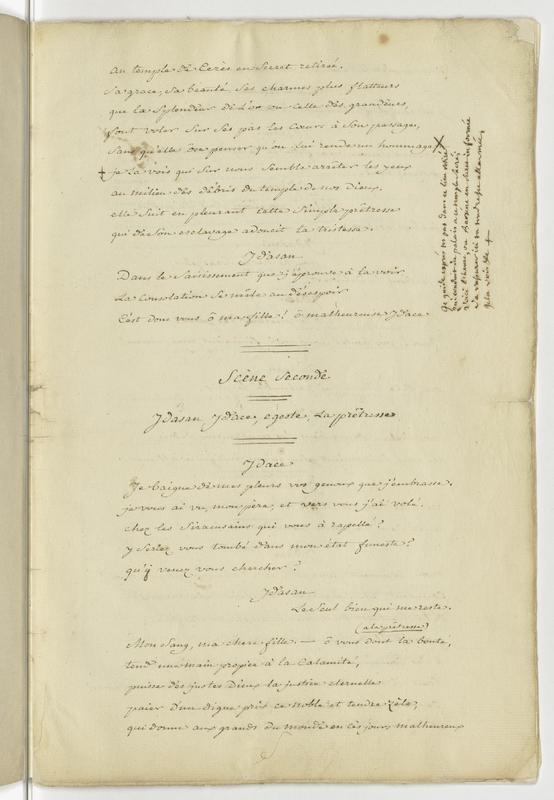 au temple de Cerès en secret retirée.
Sa grace, sa beauté, ses charmes plus flatteurs
que la splendeur de l'or ou celle des grandeurs,
font voler sur ses pas les cœurs à son passage,
sans qu'elle ôse penser qu'on lui rende un hommage. X
+ je la vois qui sur nous semble arrêter les yeux
au milieu des débris du temple de nos Dieux.
elle suit en pleurant cette simple prêtresse
qui de son esclavage adoucit la tristesse.
Idasan
Dans le saisissement que j'éprouve à la voir
La Consolation se mêle au désespoir
C'est donc vous ô ma fille! ô malheureuse Idace
Je guide
vers
ces lieux
+
Scène Seconde
Idasan Idace, egeste, La prêtresse
Idace
Je baigne de mes pleurs vos genoux que j'embrasse.
je vous ai vu, mon père, et vers vous j'ai volé.
chez les Siracusains qui vous à rapellé?
y seriez vous tombé dans mon état funeste?
qu'y venez vous chercher?
Idasan
Le seul bien qui me reste.
(à la prêtresse)
Mon sang, ma chere fille. — ô vous dont la bonté,
tend une main propice à la calamité,
puisse des justes Dieux la justice eternelle
paier d'un digne prix ce noble et tendre zèle,
qui donne aux grands du monde en ces jours malheureux